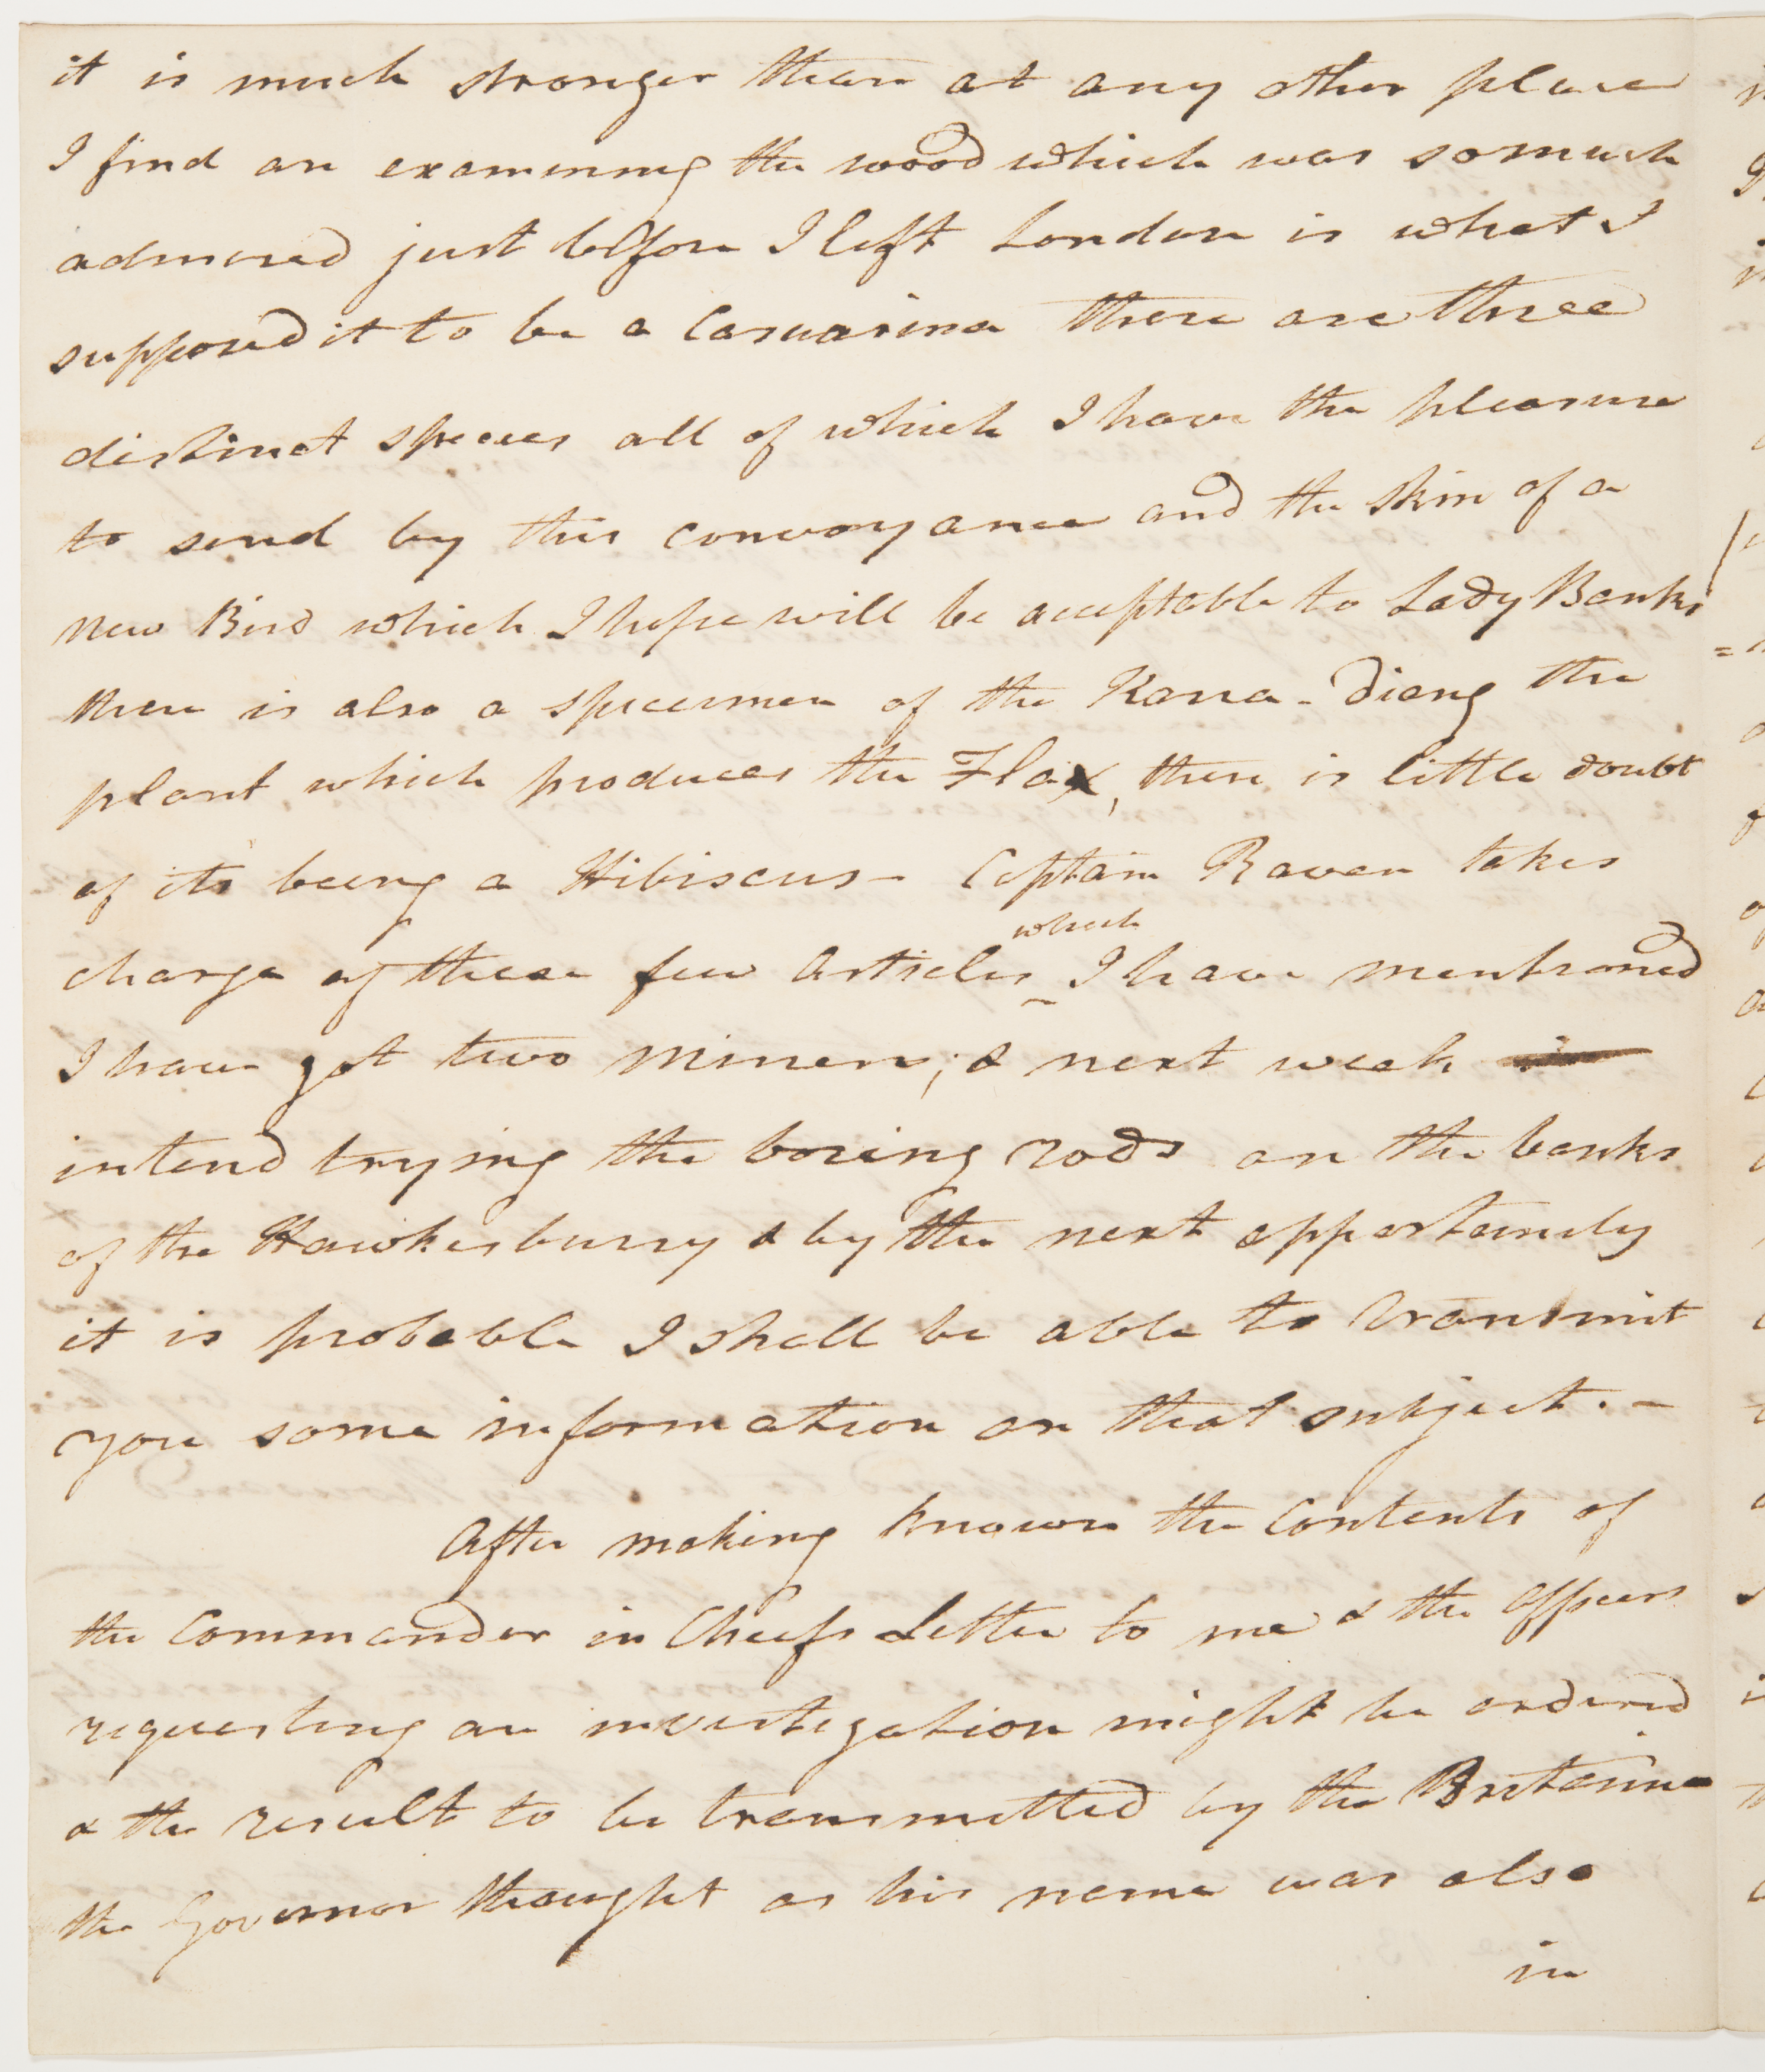 it is much stronger than at any other place
I find on examining the wood which was so much
admired just before I left London is what I
supposed it to be a Casuarina there are three
distinct species all of which I have the pleasure
to send by this convoyance and the skin of a
new Bird which I hope will be acceptable to Lady Banks
there is also a specimen of the Karra-Diang the
plant which produces the Flax, there is little doubt
of its being a Hibiscus – Captain Raven takes
which
charge of these few Articles I have mentioned
I have got two Miners; & next week
intend trying the boring rods on the banks
of the Hawkesburry & by the next opportunity
it is probable I shall be able to transmit
you some information on that subject. –
After making known the Contents of
the Commander in Chiefs Letter to me & the Officers
requesting an investigation might be ordered
& the result to be transmitted by the Britannia
the Governor thought as his name was also
in